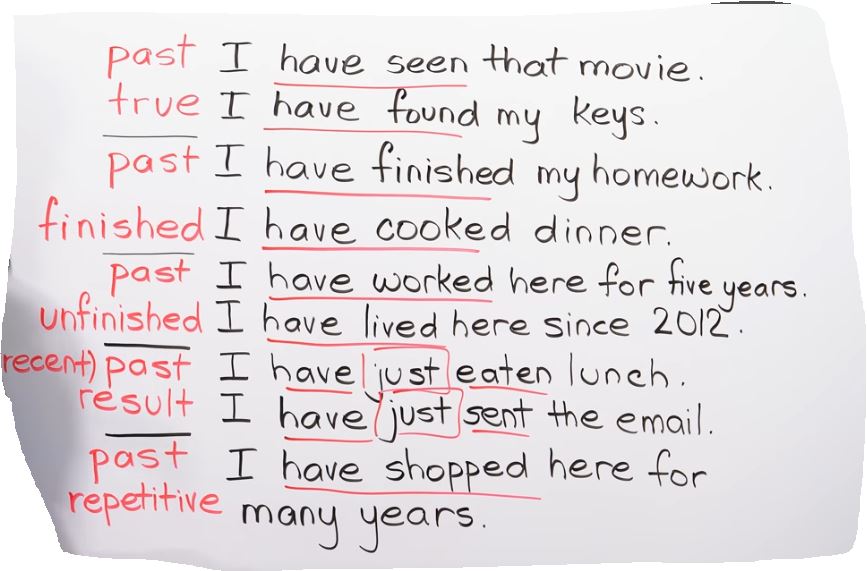 past I have seen that movie.
true I have found my keys.
past I have finished my homework.
finished I have cooked dinner.
past I have worked here for five years.
unfinished I have lived here since 2012.
recent) past I have just eaten lunch.
result I have just sent the email.
past I have shopped here for
repetitive many years.